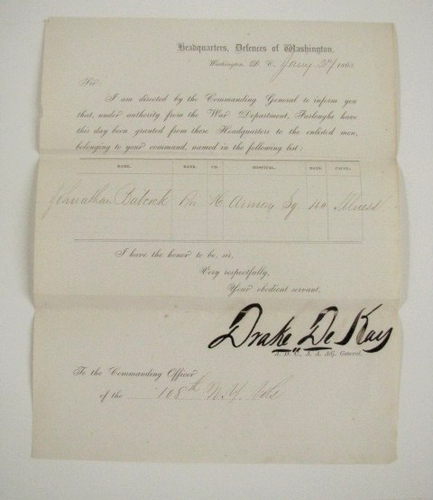 Headquarters, Defences of Washington,
Washington, D. C., Jany 186
Sir:
I am directed by the Commanding General to inform you
that, under authority from the War Department, Furloughs have
this day been granted from these Headquarters to the enlisted men,
belonging to your command, named in the following list:
NAME. RANK. CO. HOSPITAL. DAYS. CAUSE.
Johnathan Babcock H Armory Sq Illness
I have the honor to be, sir,
Very respectfully,
Your obedient servant,
Drake De Kay
A. D. C., A. A. Adj. General.
To the Commanding Officer
of the 108th N.Y. Vols